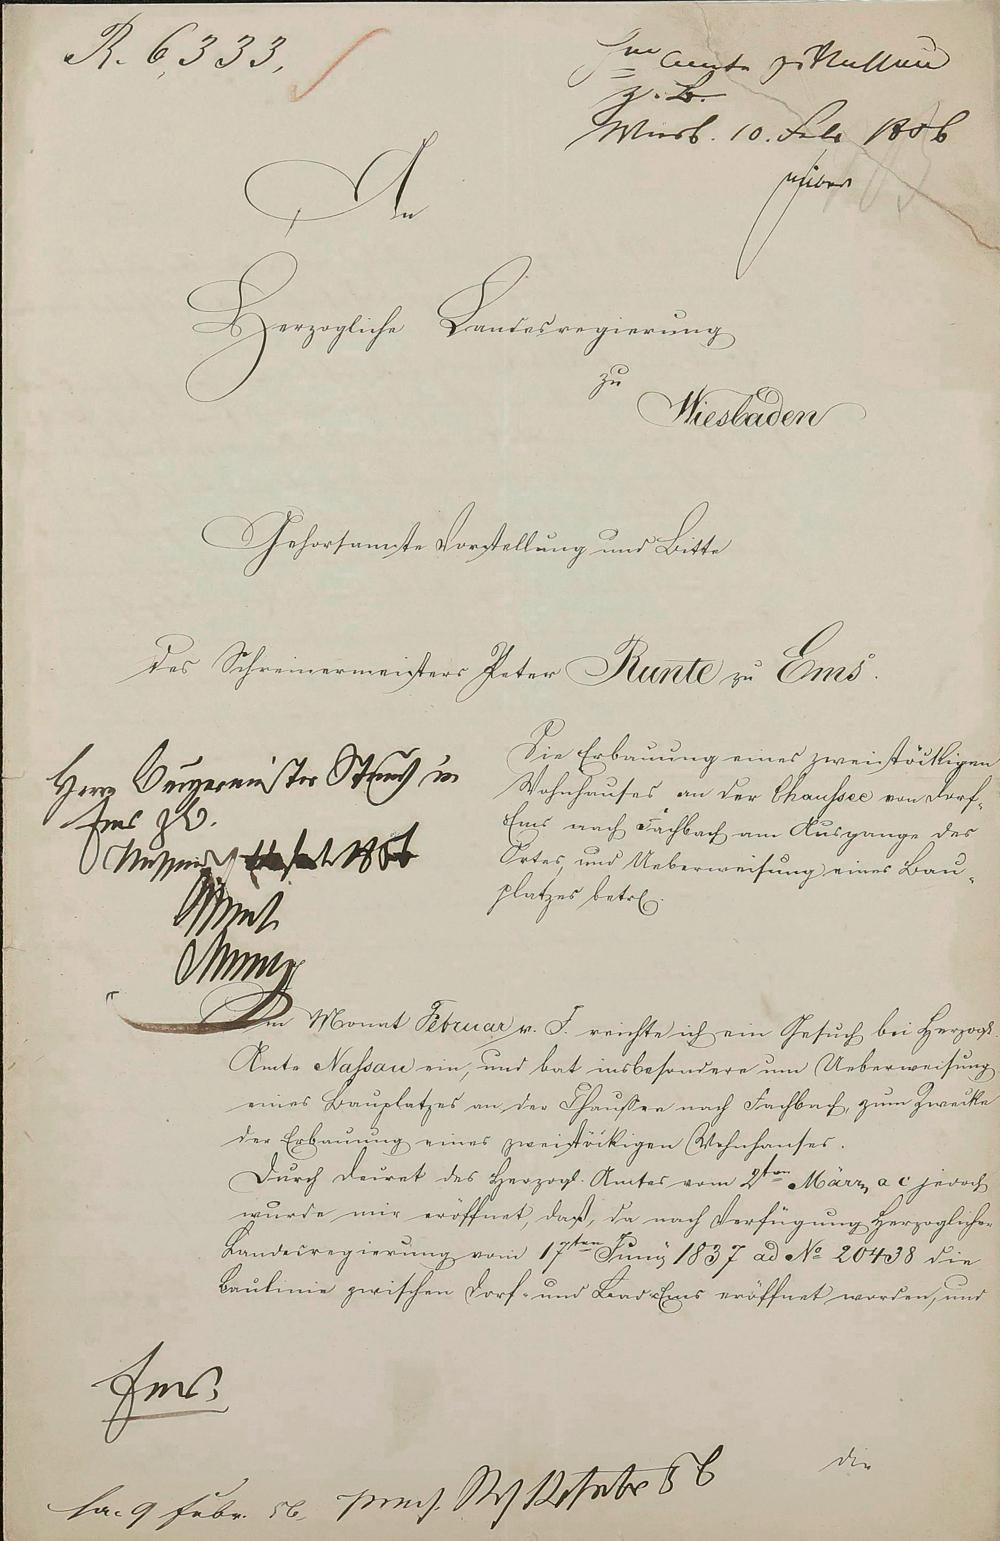 R. 6,333,
Amte zu Nassau
z. B.
Wiesb. 10. Feb 1856
An
Herzogliche Landesregierung
zu
Wiesbaden
Gehorsamste Vorstellung und Bitte
des Schreinermeisters Peter Runte zu Ems.
Die Erbauung eines zweistöckigen
Wohnhauses an der Chaussee von Dorf-
Ems nach Fachbach am Ausgange des
Ortes, und Ueberweisung eines Bau-
platzes betr.
Herrn Bürgermeister in
Ems z B.
Nassau 1856
Im Monat Februar v. J. reichte ich ein Gesuch bei Herzogl.
Amte Nassau ein, und bat insbesondere um Ueberweisung
eines Bauplatzes an der Chaussee nach Fachbach, zum Zwecke
der Erbauung eines zweistöckigen Wohnhauses.
Durch Decret des Herzogl. Amtes vom 2ten März a c jedoch
wurde mir eröffnet, daß, da nach Verfügung Herzoglicher
Landesregierung vom 17ten Juny 1837 ad No 20438 die
Baulinie zwischen Dorf- und Bad-Ems eröffnet worden, und
Ems.
die
9 Febr. 56. 56